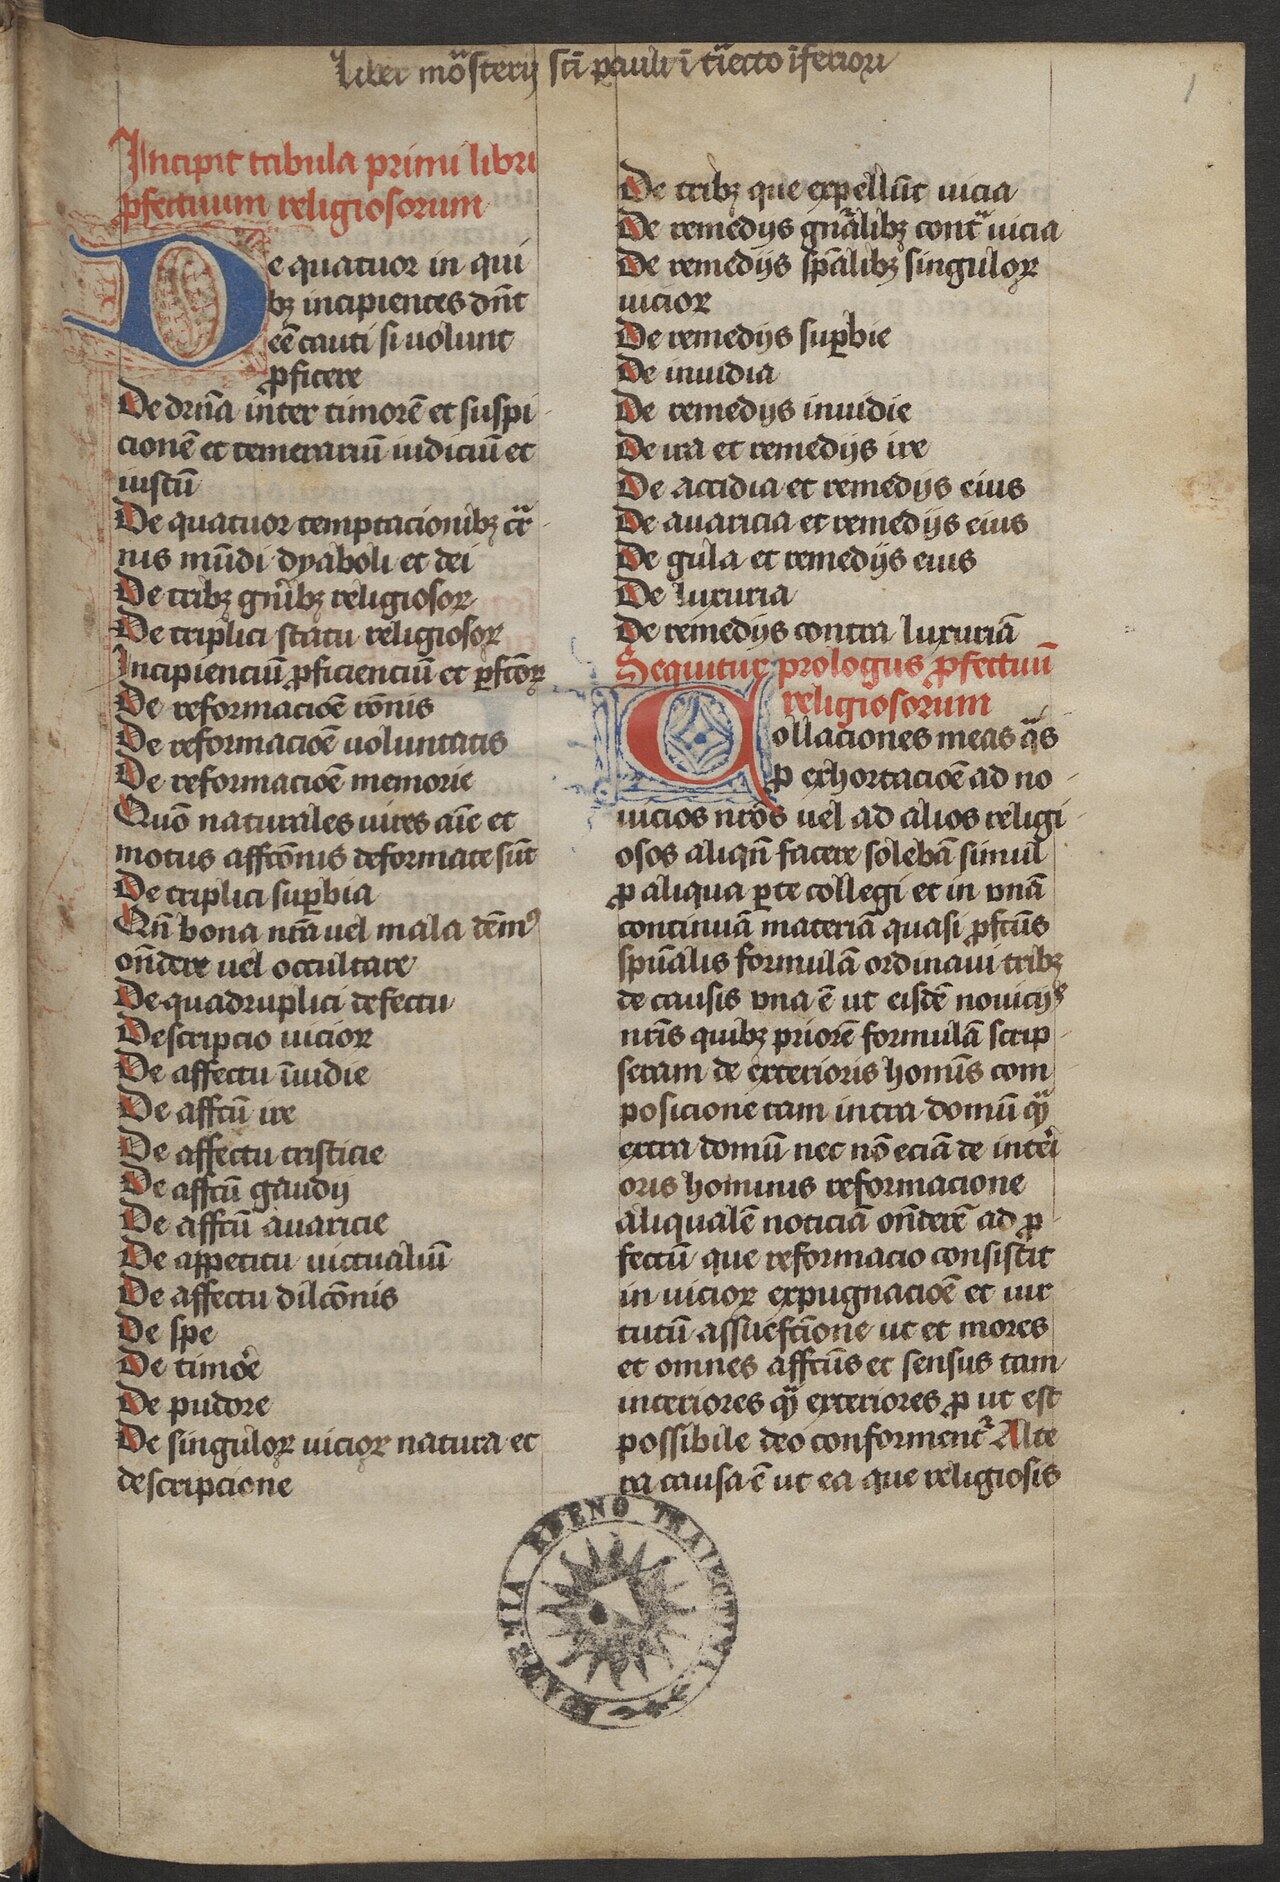 Liber mo̅sterij sc̅i pauli i̅ t̅iecto i̅feriori
1
Incipit tabula primi libri
ꝓfectuum religiosorum
De quatuor in qui
bꝫ incipientes dn̅t
ee̅ cauti si uolunt
ꝓficere
De drn̅a inter timore̅ et suspi
cione̅ et temerariu̅ iudiciu̅ et
iustu̅
De quatuor temptacionibꝫ ca̅r
nis mu̅di dyaboli et dei
De tribꝫ gn̅ibꝫ religiosoꝝ
De triplici statu religiosoꝝ
Incipienciu̅ ꝓficienciu̅ et ꝑfc̅oꝝ
De reformacio̅e ro̅nis
De reformacio̅e uoluntatis
De reformacio̅e memorie
Quo̅ naturales uires ai̅e et
motus affc̅onis deformate su̅t
De triplici suꝑbia
Qn̅ bona nr̅a uel mala de̅mꝰ
on̅dere uel occultare
De quadruplici defectu
Descriptio uicioꝝ
De affectu i̅uidie
De affc̅u ire
De affectu tristicie
De affc̅u gaudij
De affc̅u auaricie
De appetitu uictualiu̅
De affectu dilc̅onis
De spe
De timore
De pudore
De singuloꝝ uicioꝝ natura et
descripcione
De tribꝫ que expellu̅t uicia
De remedijs gn̅alibꝫ contᵃ uicia
De remedijs sp̅alibꝫ singuloꝝ
uicioꝝ
De remedijs suꝑbie
De inuidia
De remedijs inuidie
De ira et remedijs ire
De accidia et remedijs eius
De auaricia et remedijs eius
De gula et remedijs eius
De luxuria
De remedijs contra luxuria̅
Sequitur prologus ꝓfectuu̅
religiosorum
Collaciones meas qᵃs
ꝓ exhortacio̅e ad no
uicios nr̅os uel ad alios religi
osos aliqn̅ facere soleba̅ simul
ꝓ aliqua ꝑte collegi et in vna̅
continua̅ materia̅ quasi ꝓfc̅us
sp̅ualis formula̅ ordinaui tribꝫ
de causis vna e̅ ut eisde̅ nouicijs
nr̅is quibꝫ priore̅ formula̅ scrip
seram de exterioris homi̅s com
posicione tam intra domu̅ qᵃ̅
extra domu̅ nec no̅ ecia̅ de interi
oris hominis reformacione
aliquale̅ noticia̅ on̅dere̅ ad ꝓ
fectu̅ que reformacio consistit
in uicioꝝ expugnacio̅e et uir
tutu̅ assuefc̅ione ut et mores
et omnes affc̅us et sensus tam
interiores qᵃ̅ exteriores ꝓ ut est
possibile deo conforment᷑ Alte
ra causa e̅ ut ea que religiosis
ACADEMIA RHENO TRAIECTINA